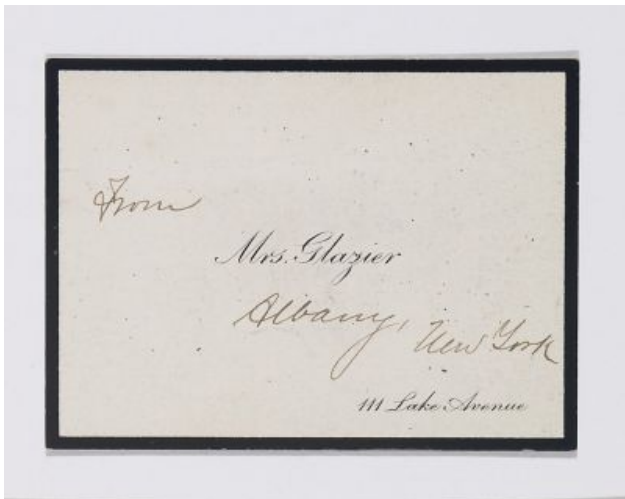 From
Mrs. Glazier
Albany, New York
111 Lake Avenue